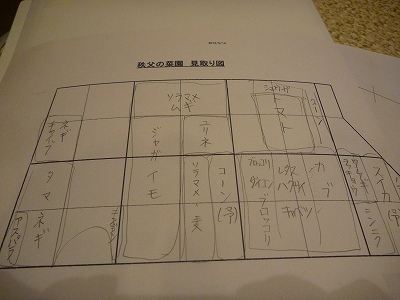 秩父の菜園 見取り図
ソラマメ
ムギ
トマト
コーン
ネギ
ジャガイモ
ユリネ
タマ
ネギ
アスパラ
ソラマメ・麦
コーン(予)
ブロッコリ
ダイコン
ブロッコリ
レタス
ハクサイ
キャベツ
カブ
スイカ(予)
ニンニク